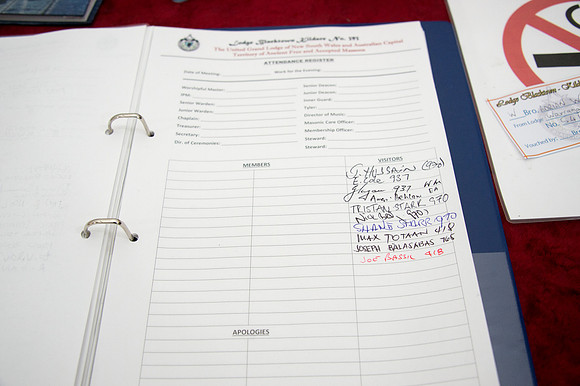 Lodge Blacktown Kildare No. 393
The United Grand Lodge of New South Wales and Australian Capital
Territory of Ancient Free and Accepted Masons
ATTENDANCE REGISTER
Date of Meeting: Work for the Evening:
Worshipful Master: Senior Deacon:
IPM: Junior Deacon:
Senior Warden: Inner Guard:
Junior Warden: Tyler:
Chaplain: Director of Music:
Treasurer: Masonic Care Officer:
Secretary: Membership Officer:
Dir. of Ceremonies: Steward:
Steward:
MEMBERS VISITORS
E. Cole 937
937
TRISTAN STARR 970
970
SHANE STARR 970
MAX TOTAAN 418
JOSEPH BALASABAS
JOE BASSIL 418
APOLOGIES
Lodge Blacktown Kild
W. Bro.
From Lodge
No.
Vouched by: